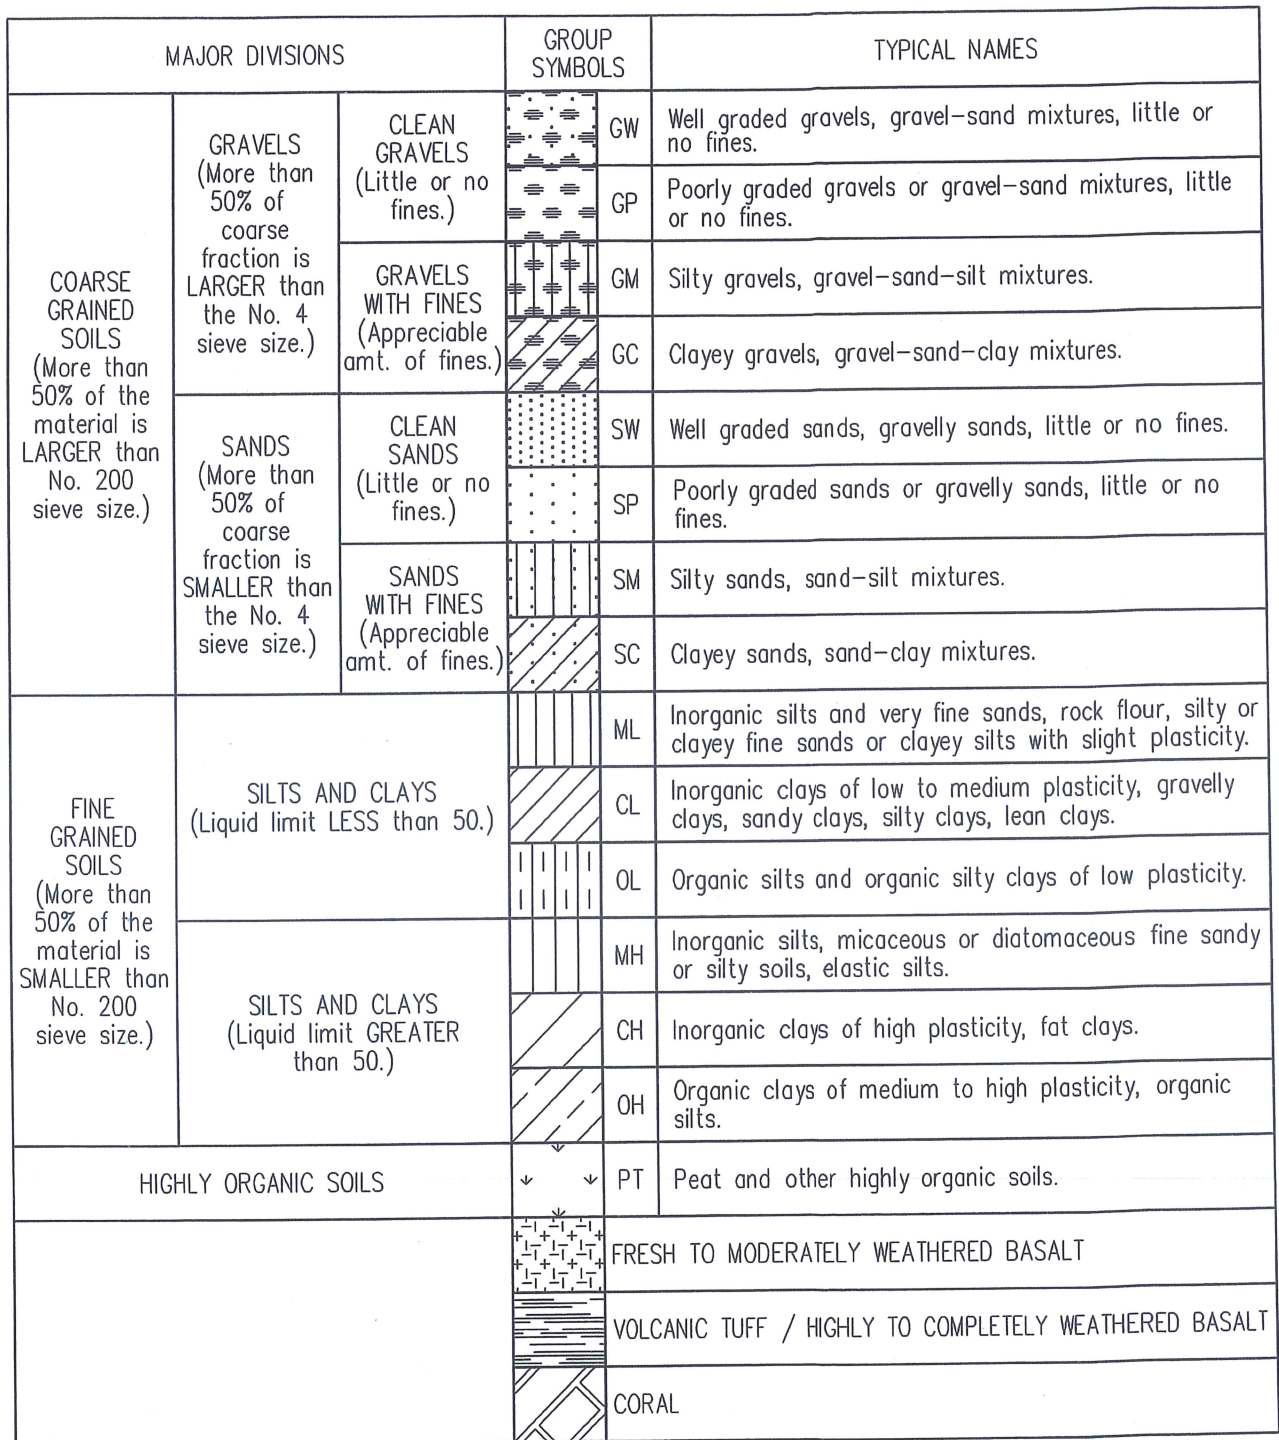 MAJOR DIVISIONS
GROUP
SYMBOLS
TYPICAL NAMES
COARSE
GRAINED
SOILS
(More than
50% of the
material is
LARGER than
No. 200
sieve size.)
GRAVELS
(More than
50% of
coarse
fraction is
LARGER than
the No. 4
sieve size.)
CLEAN
GRAVELS
(Little or no
fines.)
GW
Well graded gravels, gravel-sand mixtures, little or
no fines.
GP
Poorly graded gravels or gravel-sand mixtures, little
or no fines.
GRAVELS
WITH FINES
(Appreciable
amt. of fines.)
GM
Silty gravels, gravel-sand-silt mixtures.
GC
Clayey gravels, gravel-sand-clay mixtures.
SANDS
(More than
50% of
coarse
fraction is
SMALLER than
the No. 4
sieve size.)
CLEAN
SANDS
(Little or no
fines.)
SW
Well graded sands, gravelly sands, little or no fines.
SP
Poorly graded sands or gravelly sands, little or no
fines.
SANDS
WITH FINES
(Appreciable
amt. of fines.)
SM
Silty sands, sand-silt mixtures.
SC
Clayey sands, sand-clay mixtures.
FINE
GRAINED
SOILS
(More than
50% of the
material is
SMALLER than
No. 200
sieve size.)
SILTS AND CLAYS
(Liquid limit LESS than 50.)
ML
Inorganic silts and very fine sands, rock flour, silty or
clayey fine sands or clayey silts with slight plasticity.
CL
Inorganic clays of low to medium plasticity, gravelly
clays, sandy clays, silty clays, lean clays.
OL
Organic silts and organic silty clays of low plasticity.
SILTS AND CLAYS
(Liquid limit GREATER
than 50.)
MH
Inorganic silts, micaceous or diatomaceous fine sandy
or silty soils, elastic silts.
CH
Inorganic clays of high plasticity, fat clays.
OH
Organic clays of medium to high plasticity, organic
silts.
HIGHLY ORGANIC SOILS
PT
Peat and other highly organic soils.
FRESH TO MODERATELY WEATHERED BASALT
VOLCANIC TUFF / HIGHLY TO COMPLETELY WEATHERED BASALT
CORAL